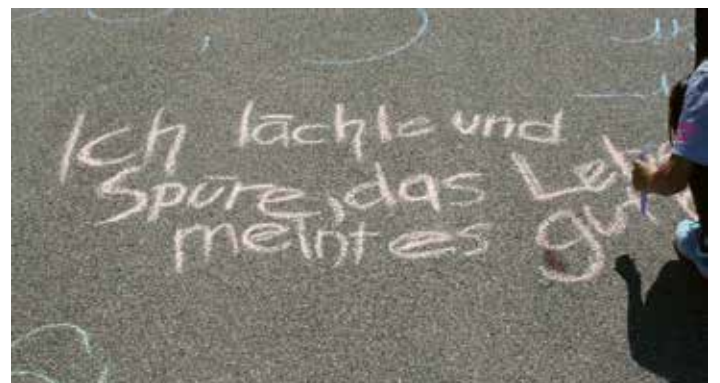 Ich lächle und
Spüre, das Leb
meint es gut